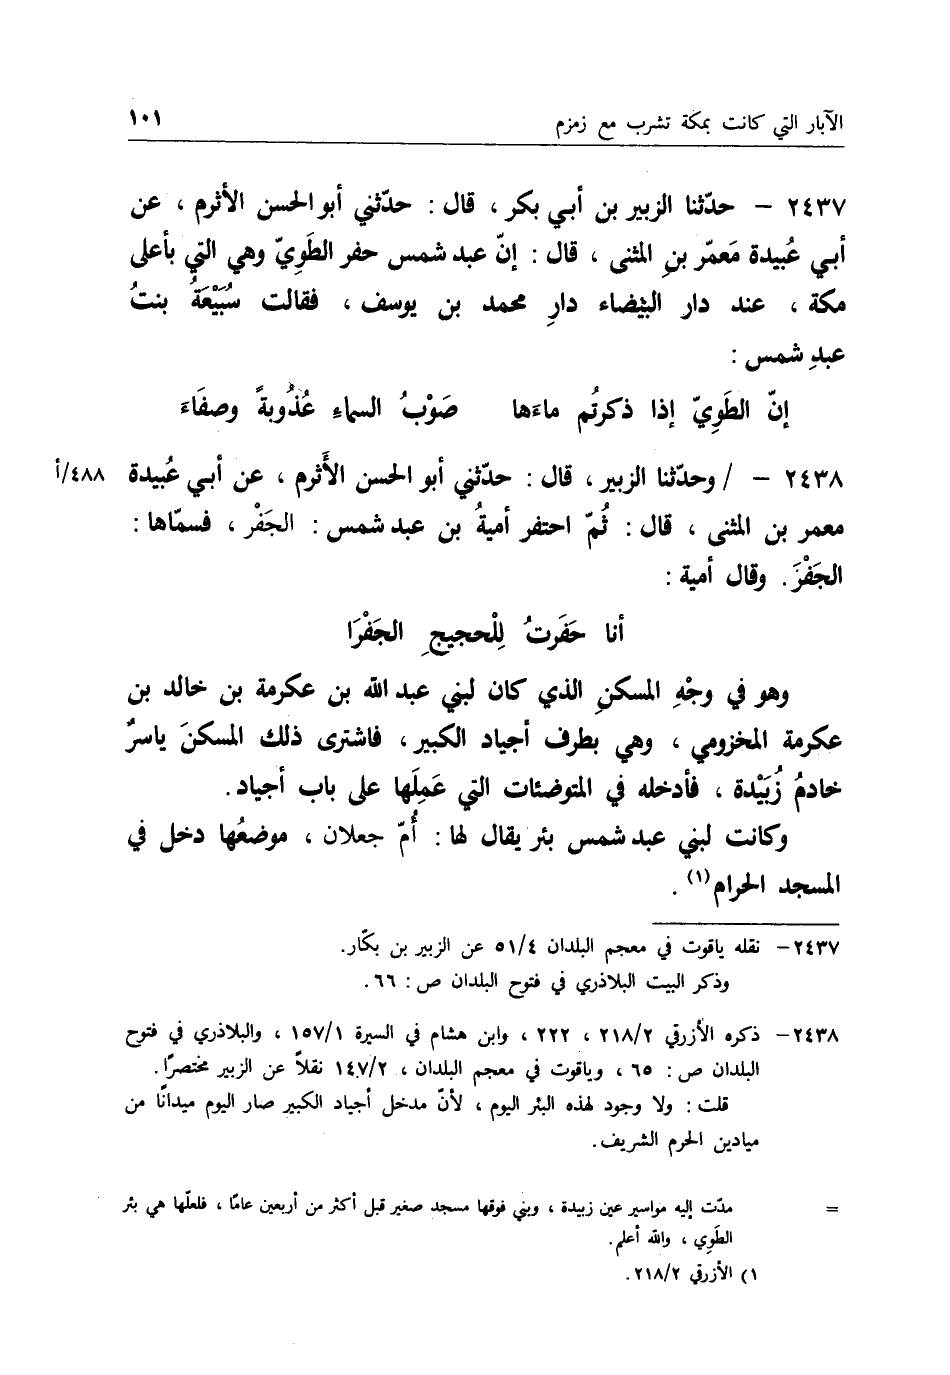 الآبار التي كانت بمكة تشرب مع زمزم ١٠١
٢٤٣٧ – حدّثنا الزبير بن أبي بكر ، قال : حدّثني أبو الحسن الأثرم ، عن
أبي عُبيدة مَعمّر بنِ المثنى ، قال : إنّ عبد شمس حفر الطَوِيّ وهي التي بأعلى
مكة ، عند دار البيْضاء دارِ محمد بن يوسف ، فقالت سُبَيْعَةُ بنتُ
عبدِ شمس :
إنّ الطَوِيّ إذا ذكرتُم ماءَها صَوْبُ السماءِ عُذُوبةً وصفَاءَ
٢٤٣٨ – / وحدّثنا الزبير ، قال : حدّثني أبو الحسن الأَثرم ، عن أبي عُبيدة ٤٨٨/أ
معمر بن المثنى ، قال : ثُمّ احتفر أميةُ بن عبد شمس : الجَفْر ، فسمّاها :
الجَفْرَ . وقال أمية :
أنا حَفَرتُ لِلْحجيجِ الجَفْرَا
وهو في وجْهِ المسكنِ الذي كان لبني عبد الله بن عكرمة بن خالد بن
عكرمة المخزومي ، وهي بطرف أجياد الكبير ، فاشترى ذلك المسكنَ ياسرٌ
خادمُ زُبَيْدة ، فأدخله في المتوضئات التي عَمِلَها على باب أجياد .
وكانت لبني عبد شمس بئر يقال لها : أُمّ جعلان ، موضعُها دخل في
المسجد الحرام(١) .
٢٤٣٧– نقله ياقوت في معجم البلدان ٥١/٤ عن الزبير بن بكّار.
وذكر البيت البلاذري في فتوح البلدان ص : ٦٦ .
٢٤٣٨– ذكره الأزرقي ٢١٨/٢ ، ٢٢٢ ، وابن هشام في السيرة ١٥٧/١ ، والبلاذري في فتوح
البلدان ص : ٦٥ ، وياقوت في معجم البلدان ، ١٤٧/٢ نقلاً عن الزبير مختصرًا .
قلت : ولا وجود لهذه البئر اليوم ، لأنّ مدخل أجياد الكبير صار اليوم ميدانًا من
ميادين الحرم الشريف .
= مدّت إليه مواسير عين زبيدة ، وبني فوقها مسجد صغير قبل أكثر من أربعين عامًا ، فلعلّها هي بئر
الطَوِي ، والله أعلم .
١) الأزرقي ٢١٨/٢ .